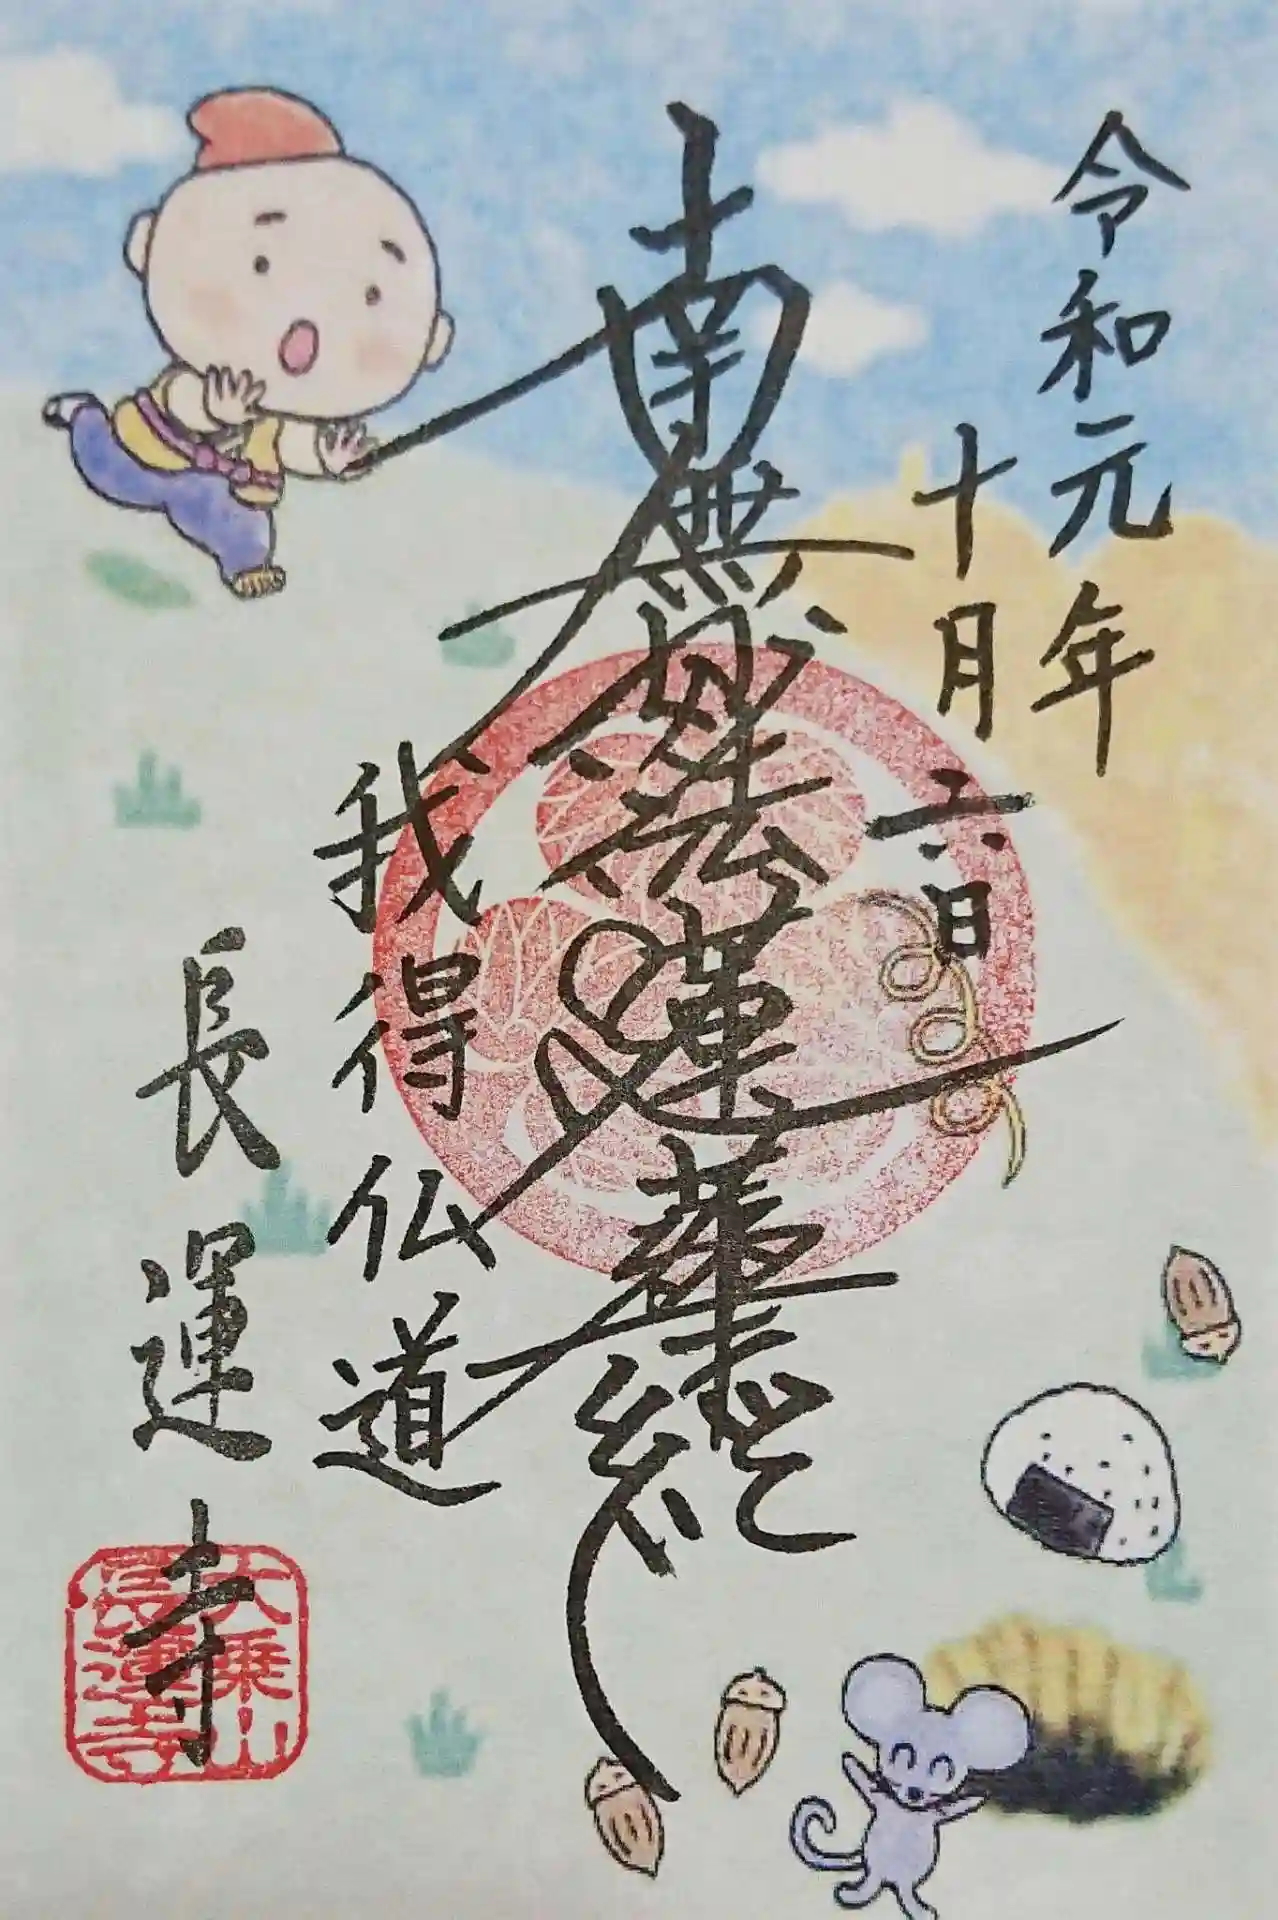 令和元年
十月六日
南無妙法蓮華経
我得仏道
長運寺
大乗山
長運寺